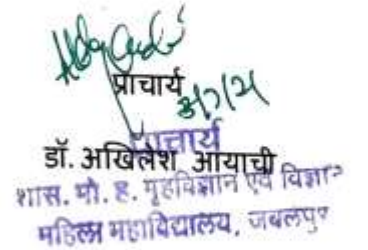 प्राचार्य
प्राचार्य
डॉ. अखिलेश आयाची
शास. मो. ह. गृहविज्ञान एवं विज्ञान
महिला महाविद्यालय, जबलपुर